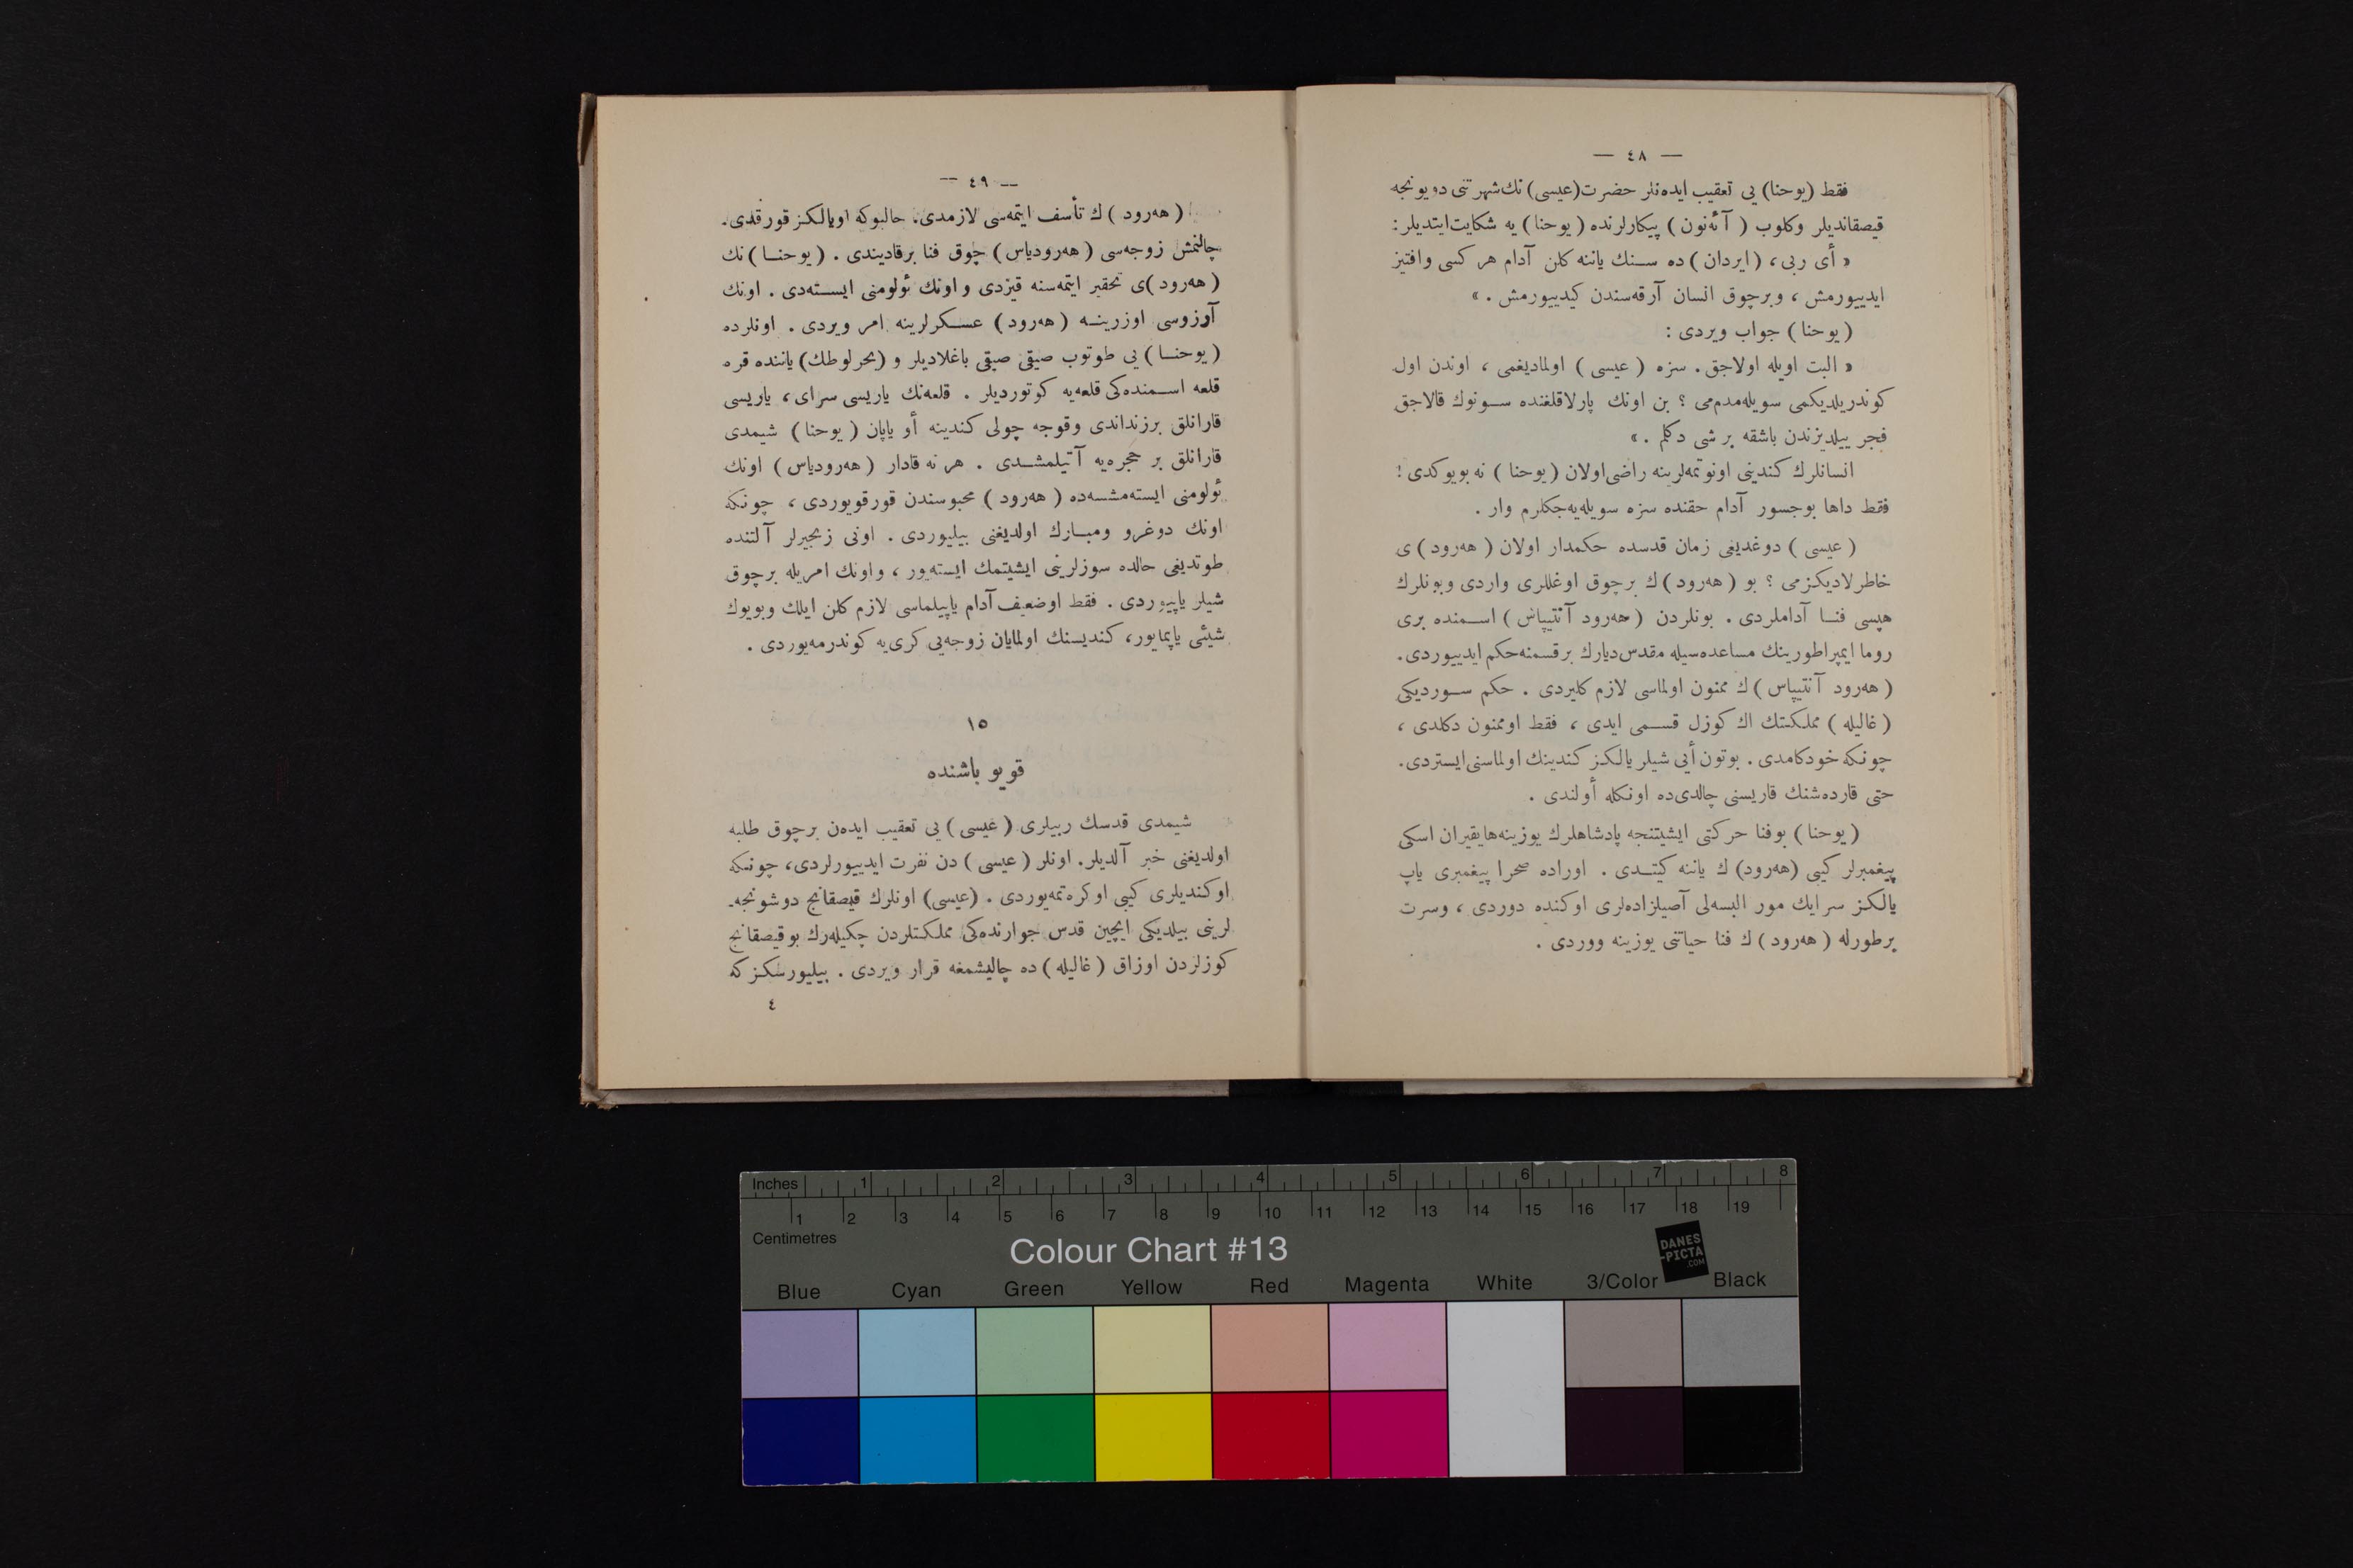 — ٤٨ —
فقط (یوحنا) یی تعقیب ایده‌نلر حضرت (عیسی) نك شهرتنی دویونجه
قیصقاندیلر وكلوب ( آئه‌نون ) پیكارلرنده ( یوحنا ) یه شكایت‌ایتدیلر :
« أی ربی ، ( ایردان ) ده سنك یاننه كلن آدام هر كسی وافتیز
ایدییورمش ، وبرچوق انسان آرقه‌سندن كیدییورمش . »
( یوحنا ) جواب ویردی :
« البت اویله اولاجق . سزه ( عیسی ) اولمادیغمی ، اوندن اول
كوندریلدیكمی سویله‌مدم‌می ؟ بن اونك پارلاقلغنده سونوك قالاجق
فجر ییلدیزندن باشقه بر شی دكلم . »
انسانلرك كندینی اونوتمه‌لرینه راضی‌اولان ( یوحنا ) نه بویوكدی !
فقط داها بوجسور آدام حقنده سزه سویله‌یه‌جكلرم وار .
( عیسی ) دوغدیغی زمان قدسده حكمدار اولان ( هه‌رود ) ی
خاطرلادیكز‌می ؟ بو ( هه‌رود ) ك برچوق اوغللری واردی وبونلرك
هپسی فنا آداملردی . بونلردن ( هه‌رود آنتیپاس ) اسمنده بری
روما ایمپراطورینك مساعده‌سیله مقدس‌دیارك برقسمنه‌حكم ایدییوردی .
( هه‌رود آنتیپاس ) ك ممنون اولماسی لازم كلیردی . حكم سوردیكی
( غالیله ) مملكتك اك كوزل قسمی ایدی ، فقط اوممنون دكلدی ،
چونكه خودكامدی . بوتون أیی شیلر یالكز كندینك اولماسنی‌ایستردی .
حتی قارده‌شنك قاریسنی چالدی‌ده اونكله أولندی .
( یوحنا ) بوفنا حركتی ایشیتنجه پادشاهلرك یوزینه‌هایقیران اسكی
پیغمبرلر كیبی (هه‌رود) ك یاننه كیتدی . اوراده صحرا پیغمبری یاپ
یالكز سرایك مور البسه‌لی آصیلزاده‌لری اوكنده دوردی ، وسرت
برطورله ( هه‌رود ) ك فنا حیاتنی یوزینه ووردی .
— ٤٩ —
( هه‌رود ) ك تأسف ایتمه‌سی لازمدی . حالبوكه اویالكز قورقدی .
چالنمش زوجه‌سی ( هه‌رودیاس ) چوق فنا برقادیندی . ( یوحنا ) نك
( هه‌رود ) ی تحقیر ایتمه‌سنه قیزدی و اونك ئولومنی ایسته‌دی . اونك
آرزوسی اوزرینه ( هه‌رود ) عسكرلرینه امر ویردی . اونلرده
( یوحنا ) یی طوتوب صیقی صیقی باغلادیلر و (بحرلوطك) یاننده قره
قلعه اسمنده‌كی قلعه‌یه كوتوردیلر . قلعه‌نك یاریسی سرای ، یاریسی
قارانلق برزنداندی وقوجه چولی كندینه أو یاپان ( یوحنا ) شیمدی
قارانلق بر حجره‌یه آتیلمشدی . هر نه قادار ( هه‌رودیاس ) اونك
ئولومنی ایسته‌مشسه‌ده ( هه‌رود ) محبوسندن قورقویوردی ، چونكه
اونك دوغرو ومبارك اولدیغنی بیلیوردی . اونی زنجیرلر آلتنده
طوتدیغی حالده سوزلرینی ایشیتمك ایسته‌یور ، واونك امریله برچوق
شیلر یاپییوردی . فقط اوضعیف آدام یاپیلماسی لازم كلن ایلك وبویوك
شیئی یاپمایور ، كندیسنك اولمایان زوجه‌یی كری‌یه كوندرمه‌یوردی .
١٥
قویو باشنده
شیمدی قدسك ربیلری ( عیسی ) یی تعقیب ایده‌ن برچوق طلبه
اولدیغنی خبر آلدیلر . اونلر ( عیسی ) دن نفرت ایدییورلردی ، چونكه
اوكندیلری كیبی اوكره‌تمه‌یوردی . (عیسی) اونلرك قیصقانج دوشونجه‌-
لرینی بیلدیكی ایچین قدس جوارنده‌كی مملكتلردن چكیله‌رك بوقیصقانج
كوزلردن اوزاق ( غالیله ) ده چالیشمغه قرار ویردی . بیلیورسكز كه
٤
Inches 1 2 3 4 5 6 7 8
1 2 3 4 5 6 7 8 9 10 11 12 13 14 15 16 17 18 19
Centimetres
Colour Chart #13
DANES
-PICTA
.COM
Blue Cyan Green Yellow Red Magenta White 3/Color Black